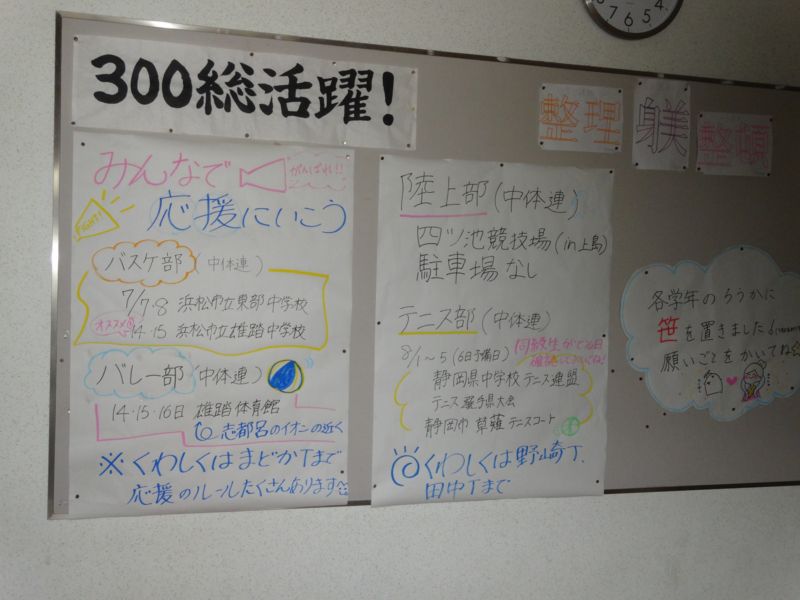 7 6 5 4
300総活躍!
整理 躾 整頓
みんなで
がんばれ!!
FIGHT!
応援にいこう
バスケ部(中体連)
7/7・8 浜松市立東部中学校
オススメ
14・15 浜松市立雄踏中学校
バレー部(中体連)
14・15・16日 雄踏体育館
志都呂のイオンの近く
※くわしくはまどかTまで
応援のルールたくさんあります
陸上部(中体連)
四ツ池競技場(in上島)
駐車場なし
テニス部(中体連)
8/1~5(6日予備日)
同級生がでる日
静岡県中学校テニス連盟
テニス選手県大会
静岡市 草薙テニスコート
くわしくは野崎T、
田中Tまで
各学年のろうかに
笹を置きました
願いごとをかいてね